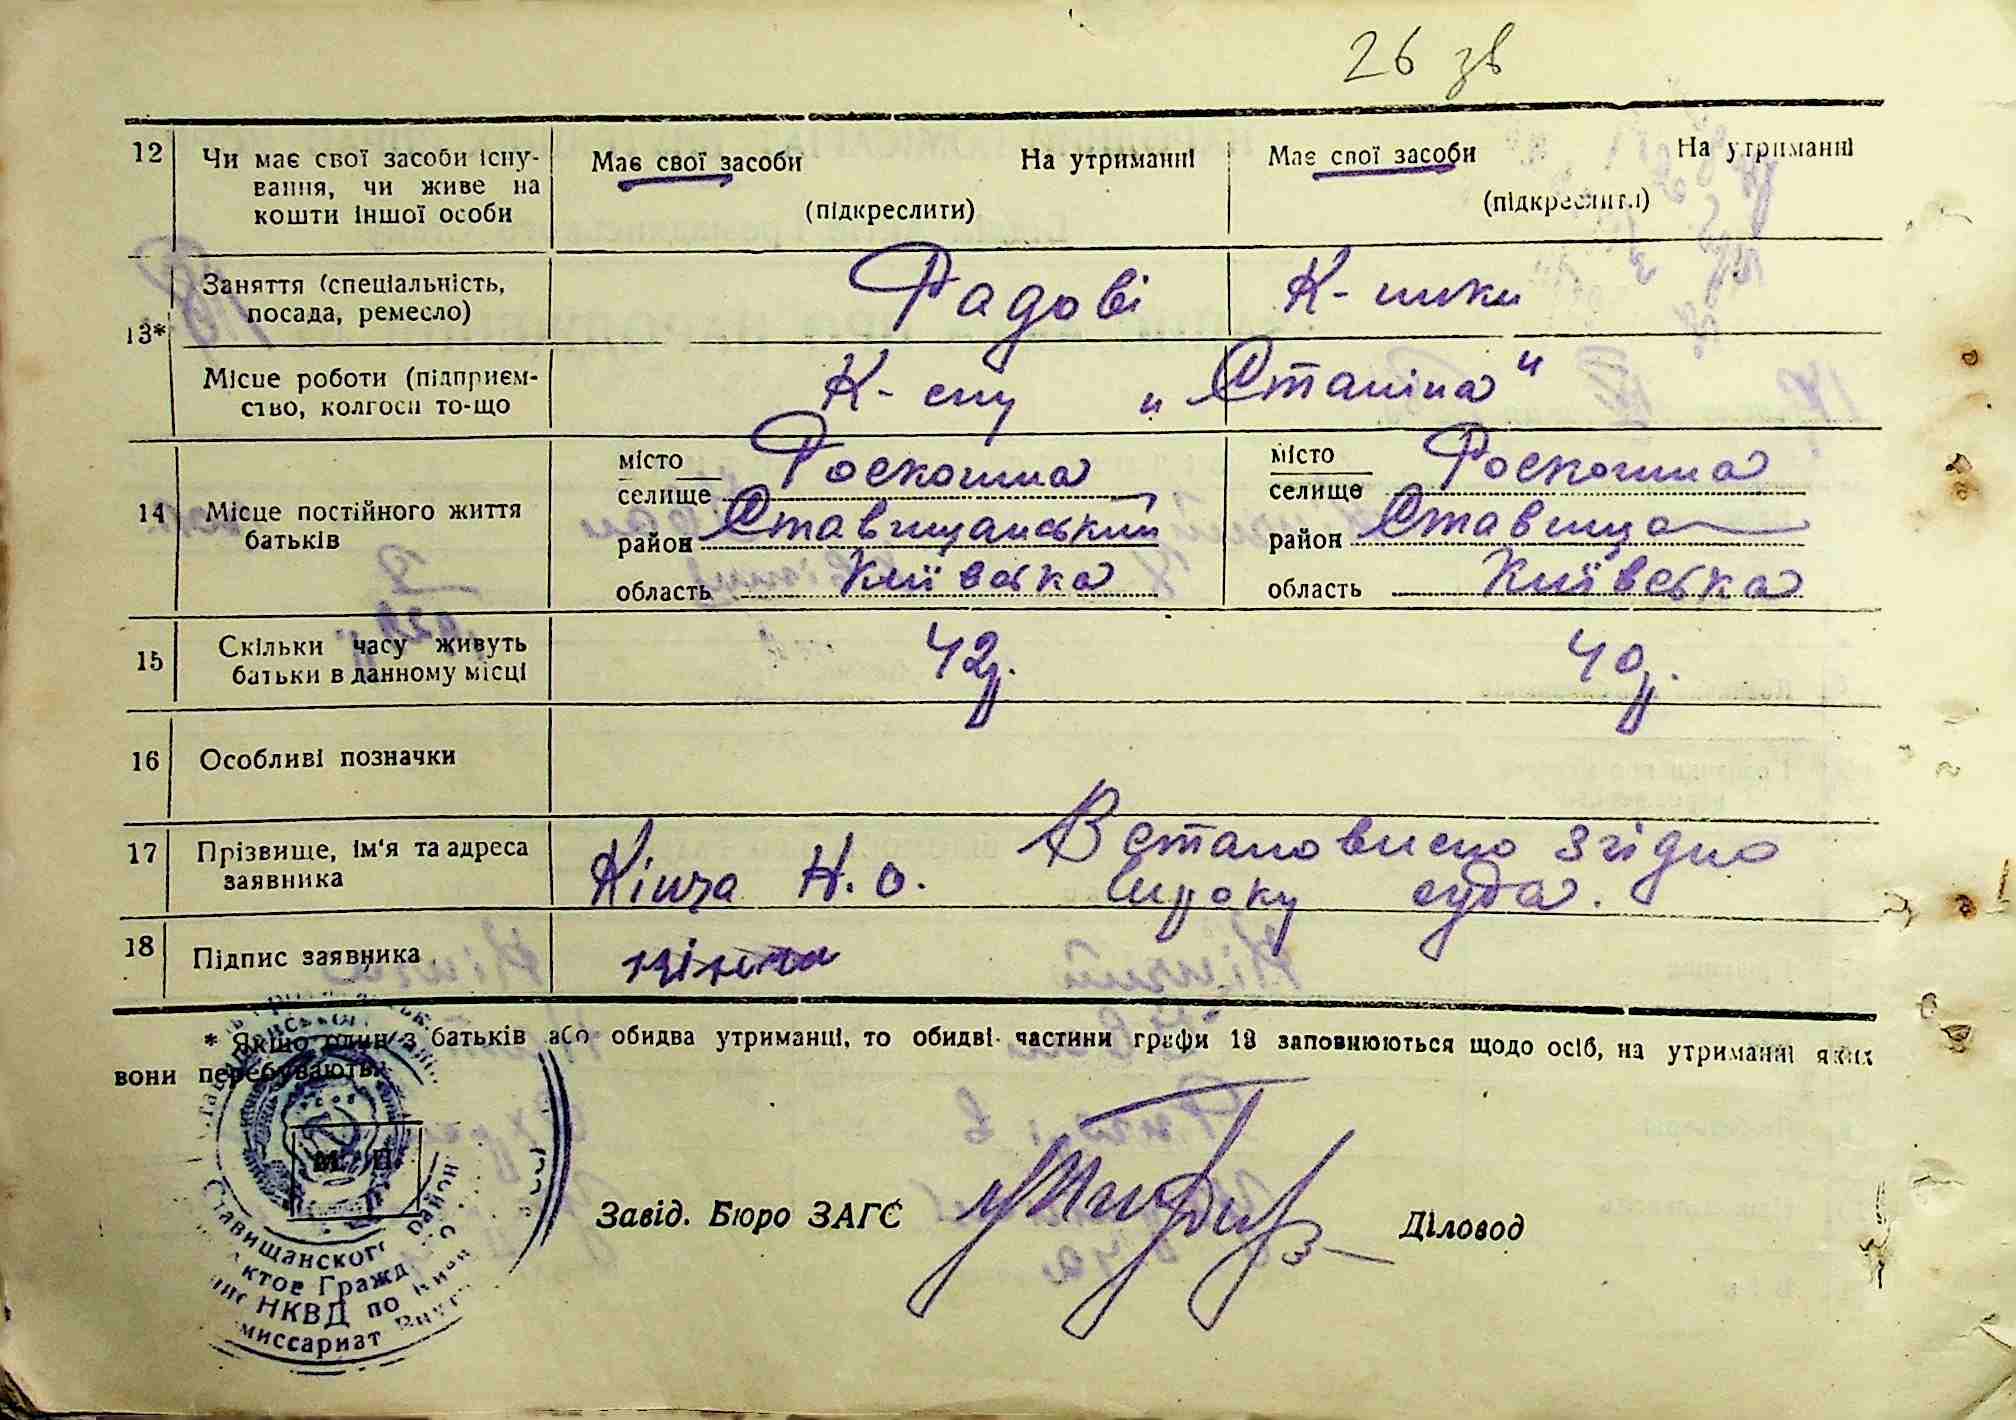 26 зв
12 Чи має свої засоби існу- Має свої засоби На утриманні Має свої засоби На утриманні
вання, чи живе на (підкреслити) (підкреслити)
кошти іншої особи
13* Заняття (спеціальність, Радові К-ники
посада, ремесло)
Місце роботи (підприєм- К-спу „Сталіна"
ство, колгосп то-що
14 Місце постійного життя батьків
місто Роскошна місто Роскошна
селище селище
район Ставищанський район Ставища
область Київська область Київська
15 Скільки часу живуть 42р. 40р.
батьки в данному місці
16 Особливі позначки
17 Прізвище, ім'я та адреса Кінча Н. О. Встановлено згідно
заявника вироку суда.
18 Підпис заявника Кінча
* Якщо один з батьків або обидва утриманці, то обидві частини графи 13 заповнюються щодо осіб, на утриманні яких
вони перебувають.
М. П.
Завід. Бюро ЗАГС Діловод
Ставищанского район
Актов Гражд
НКВД по Киев
миссариат Внут